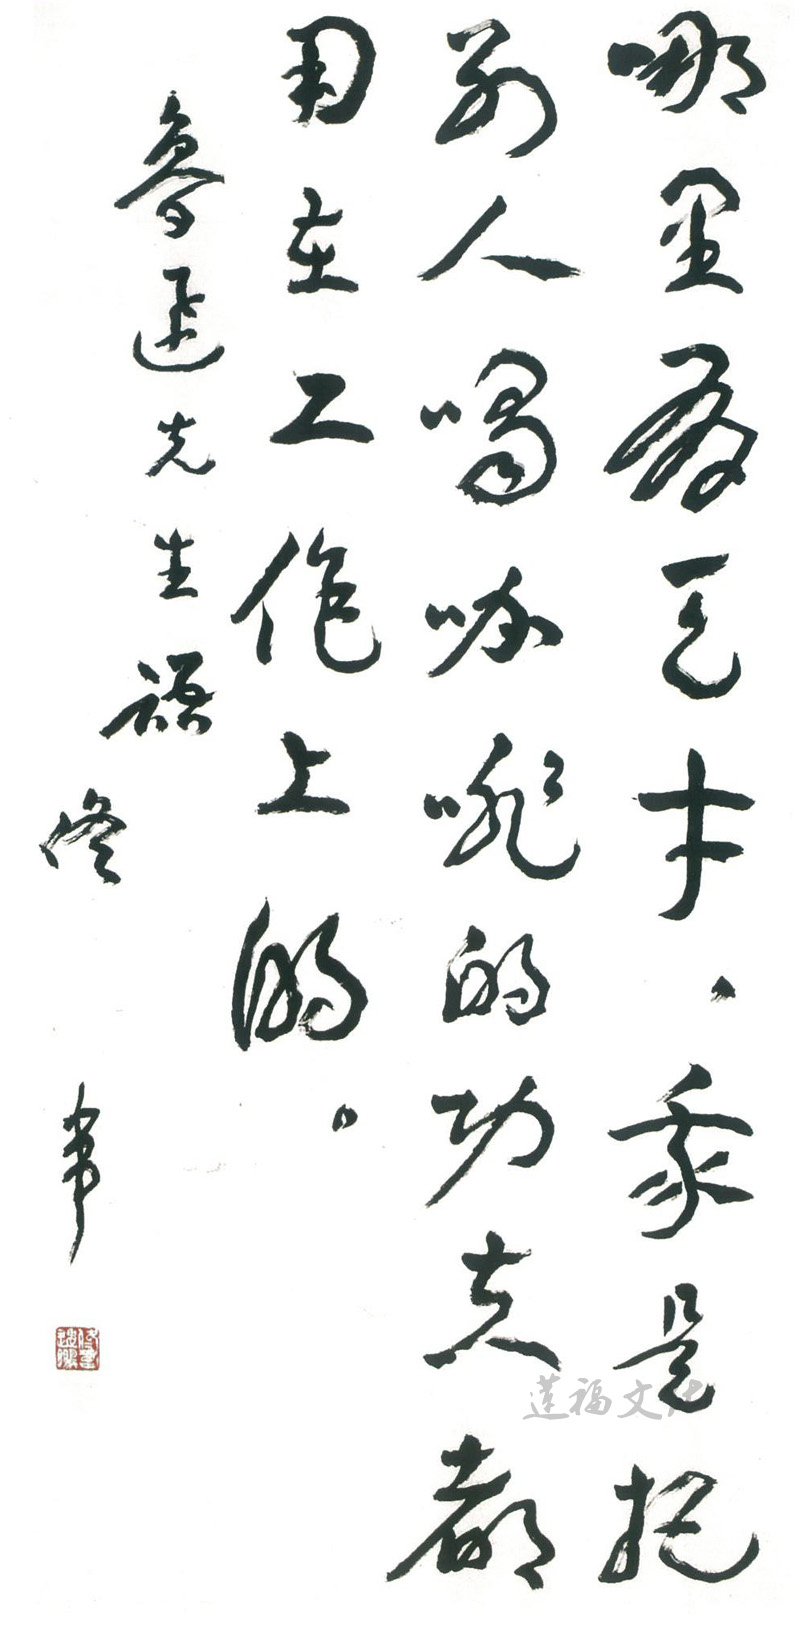 哪里有天才，我是把
别人喝咖啡的功夫都
用在工作上的。
鲁迅先生语
佟韦
莲福文化